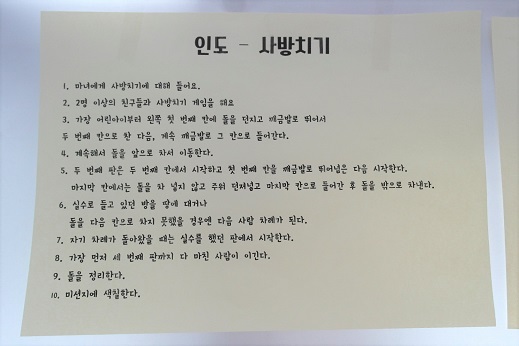 인도 - 사방치기
1. 마녀에게 사방치기에 대해 들어요.
2. 2명 이상의 친구들과 사방치기 게임을 해요
3. 가장 어린아이부터 왼쪽 첫 번째 칸에 돌을 던지고 깨금발로 뛰어서
두 번째 칸으로 찬 다음, 계속 깨금발로 그 칸으로 들어간다.
4. 계속해서 돌을 앞으로 차서 이동한다.
5. 두 번째 판은 두 번째 칸에서 시작하고 첫 번째 칸을 깨금발로 뛰어넘은 다음 시작한다.
마지막 칸에서는 돌을 차 넣지 않고 주워 던져넣고 마지막 칸으로 들어간 후 돌을 밖으로 차낸다.
6. 실수로 들고 있던 발을 땅에 대거나
돌을 다음 칸으로 차지 못했을 경우엔 다음 사람 차례가 된다.
7. 자기 차례가 돌아왔을 때는 실수를 했던 판에서 시작한다.
8. 가장 먼저 세 번째 판까지 다 마친 사람이 이긴다.
9. 돌을 정리한다.
10. 미션지에 색칠한다.